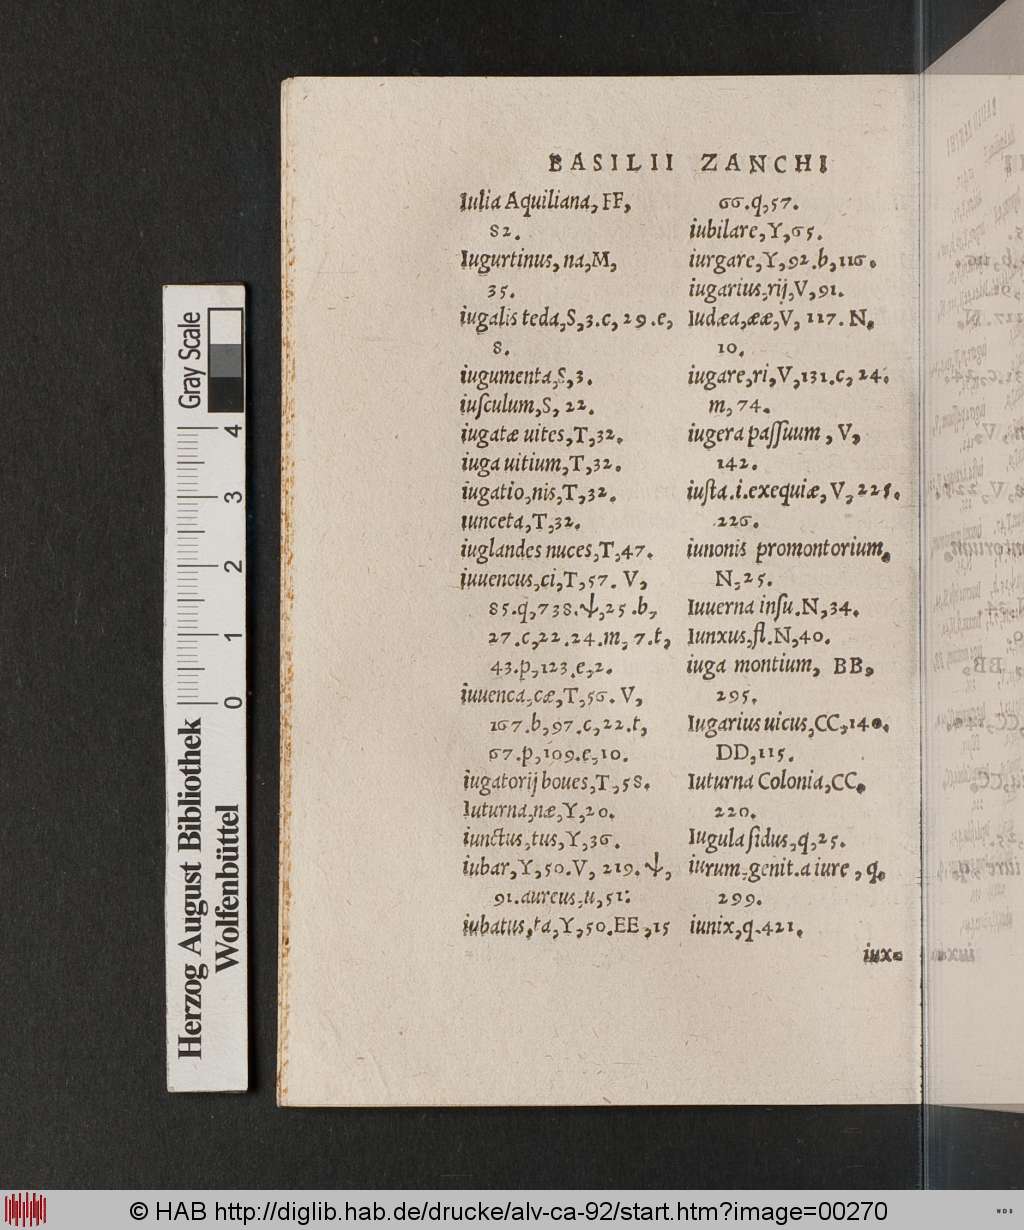 BASILII ZANCHI
Iulia Aquiliana, FF,
82.
Iugurtinus, na, M,
35.
iugalis teda, S, 3. c, 29. e,
8.
iugumenta, S, 3.
iuſculum, S, 22.
iugatæ uites, T, 32.
iuga uitium, T, 32.
iugatio, nis, T, 32.
iunceta, T, 32.
iuglandes nuces, T, 47.
iuuencus, ci, T, 57. V,
85. q, 738. ψ, 25. b,
27. c, 22. 24. m, 7. t,
43. p, 123. e, 2.
iuuenca, cæ, T, 56. V,
167. b, 97. c, 22. t,
67. p, 109. e, 10.
iugatorij boues, T, 58.
Iuturna, næ, Y, 20.
iunctus, tus, Y, 36.
iubar, Y, 50. V, 219. ψ,
91. aureus, u, 51:
iubatus, ta, Y, 50. EE, 15
66. q, 57.
iubilare, Y, 65.
iurgare, Y, 92. b, 116.
iugarius, rij, V, 91.
Iudæa, ææ, V, 117. N,
10.
iugare, ri, V, 131. c, 24.
m, 74.
iugera paſſuum, V,
142.
iuſta .i. exequiæ, V, 225.
226.
iunonis promontorium,
N, 25.
Iuuerna inſu. N, 34.
Iunxus, fl. N, 40.
iuga montium, BB,
295.
Iugarius uicus, CC, 140.
DD, 115.
Iuturna Colonia, CC,
220.
Iugula ſidus, q, 25.
iurum, genit. a iure, q,
299.
iunix, q. 421.
iux-
Gray Scale
4
3
2
1
0
Herzog August Bibliothek
Wolfenbüttel
© HAB http://diglib.hab.de/drucke/alv-ca-92/start.htm?image=00270